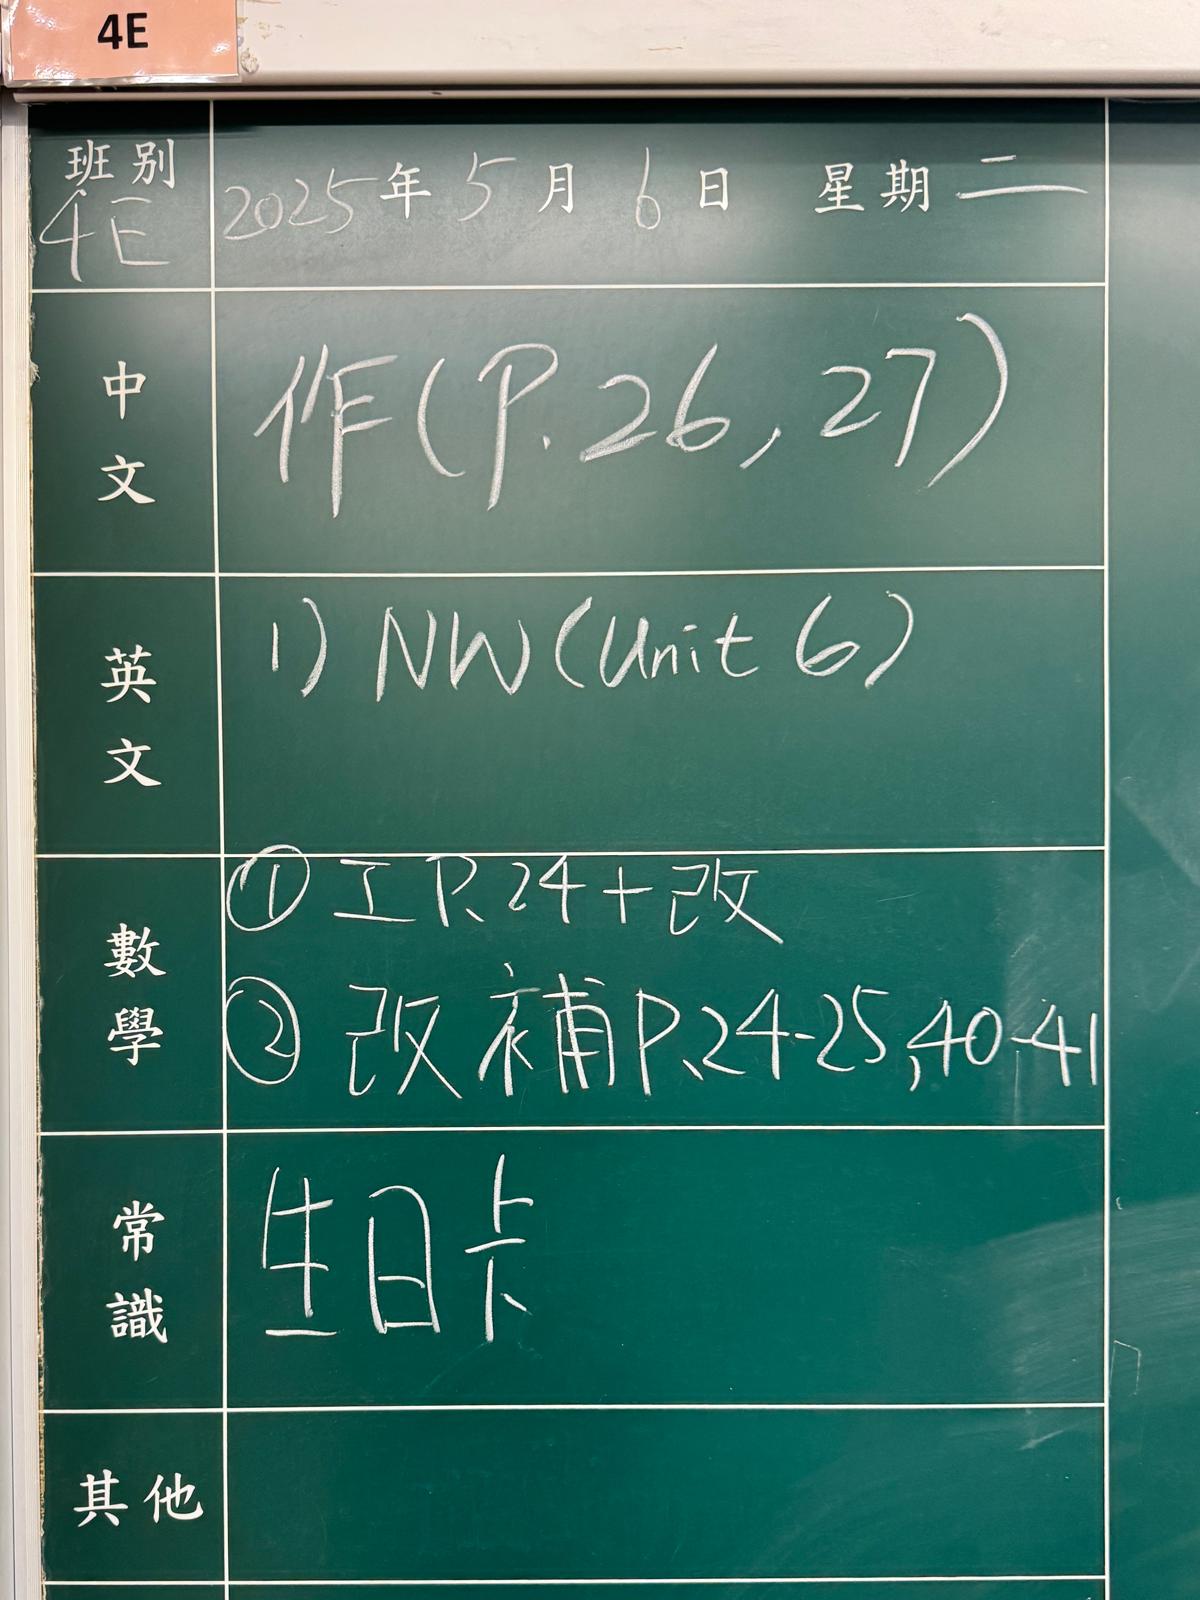 4E
班別 2025年5月6日 星期二
4E
中文 作(P.26, 27)
英文 1) NW(Unit 6)
數學 ① 工P.24+改
② 改補P.24-25,40-41
常識 生日卡
其他